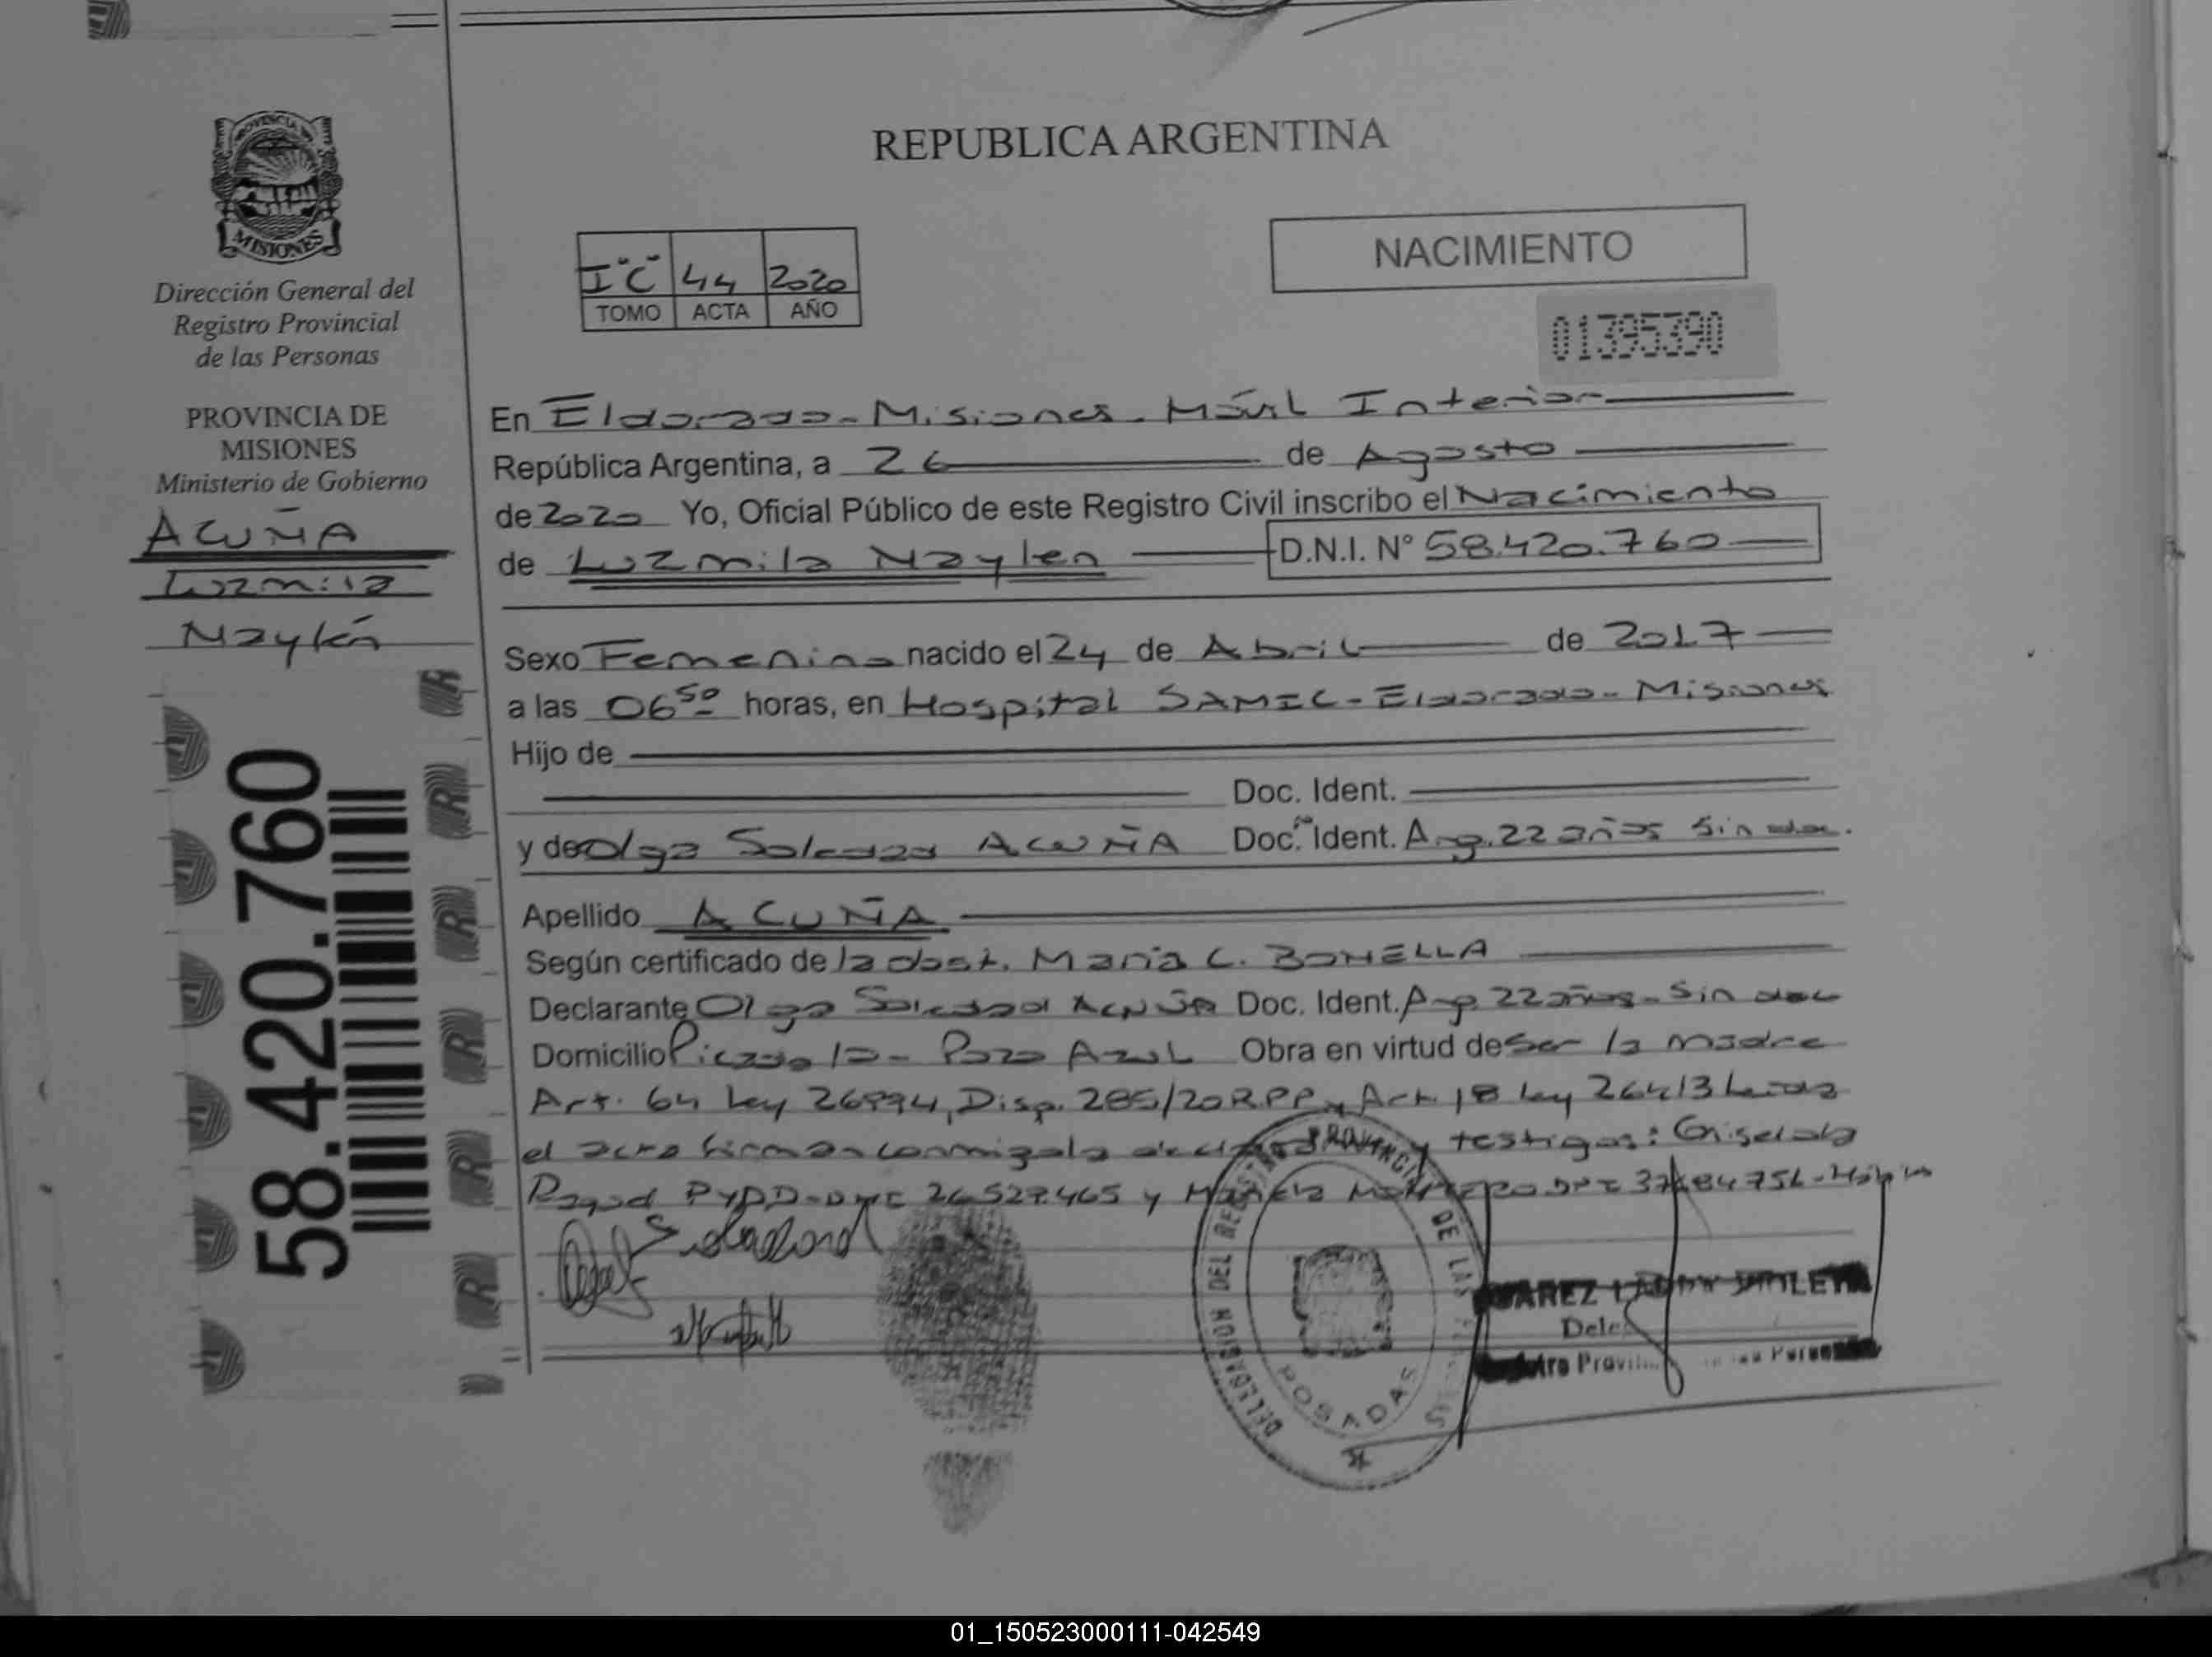 REPUBLICA ARGENTINA
PROVINCIA DE
MISIONES
Dirección General del
Registro Provincial
de las Personas
PROVINCIA DE
MISIONES
Ministerio de Gobierno
ACUÑA
Luzmila
Naylen
58.420.760
I"C" 44 2020
TOMO ACTA AÑO
NACIMIENTO
01395390
En Eldorado - Misiones - Móvil Interior
República Argentina, a 26 de Agosto
de 2020 Yo, Oficial Público de este Registro Civil inscribo el Nacimiento
de Luzmila Naylen D.N.I. N° 58.420.760
Sexo Femenino nacido el 24 de Abril de 2017
a las 06 50 horas, en Hospital SAMIC - Eldorado - Misiones
Hijo de
Doc. Ident.
y de Olga Soledad ACUÑA Doc. Ident. Arg. 22 años sin doc.
Apellido ACUÑA
Según certificado de la obst. Maria C. BONELLA
Declarante Olga Soledad ACUÑA Doc. Ident. Arg. 22 años - Sin doc
Domicilio Picada 10 - Pozo Azul Obra en virtud de ser la madre
Art. 64 Ley 26994, Disp. 285/20 R.P.P. y Art. 18 Ley 26413 Leida
el acta firman conmigo la y testigos: Gisela
26.527.465 y
Soledad
DELEGACION DEL REGISTRO PROVINCIAL DE LAS
POSADAS
01_150523000111-042549